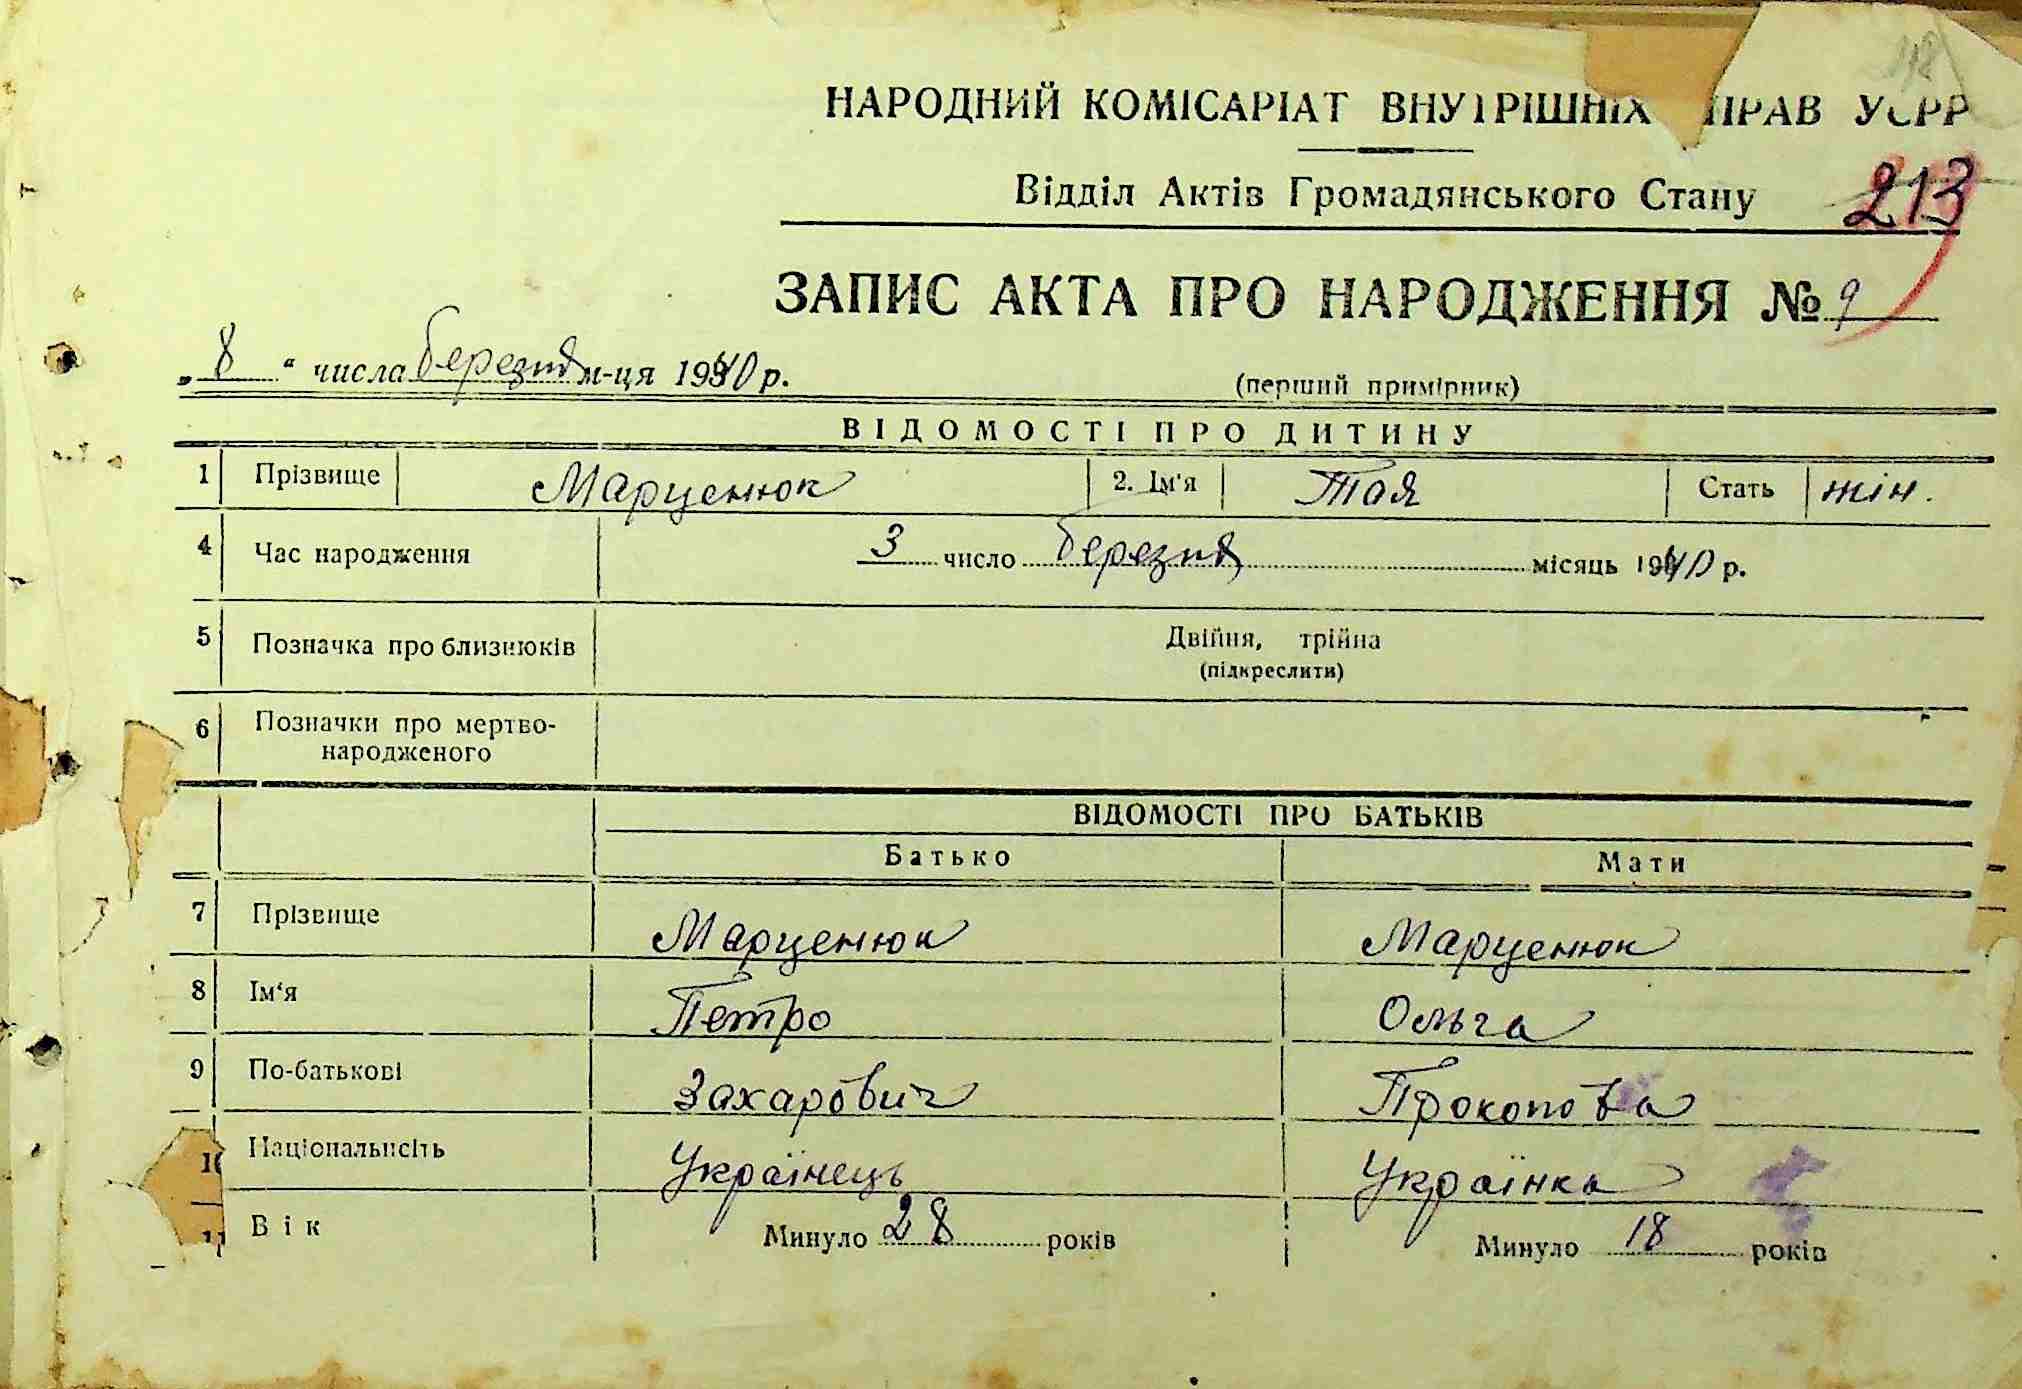 118
НАРОДНИЙ КОМІСАРІАТ ВНУТРІШНІХ СПРАВ УСРР
Відділ Актів Громадянського Стану 213
ЗАПИС АКТА ПРО НАРОДЖЕННЯ № 9
„ 8 “ числа березня м-ця 1940 р.
(перший примірник)
ВІДОМОСТІ ПРО ДИТИНУ
1 Прізвище Марценюк 2. Ім'я Тая Стать жін.
4 Час народження 3 число березня місяць 1940 р.
5 Позначка про близнюків Двійня, трійна
(підкреслити)
6 Позначки про мертво-
народженого
ВІДОМОСТІ ПРО БАТЬКІВ
Батько Мати
7 Прізвище Марценюк Марценюк
8 Ім'я Петро Ольга
9 По-батькові Захарович Прокопова
10 Національність Українець Українка
11 Вік Минуло 28 років Минуло 18 років